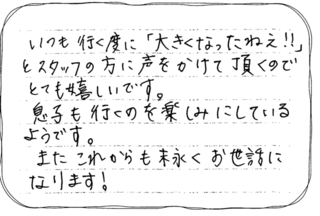 いつも行く度に「大きくなったねえ!!」
とスタッフの方に声をかけて頂くので
とても嬉しいです。
息子も行くのを楽しみにしている
ようです。
またこれからも末永くお世話に
なります!